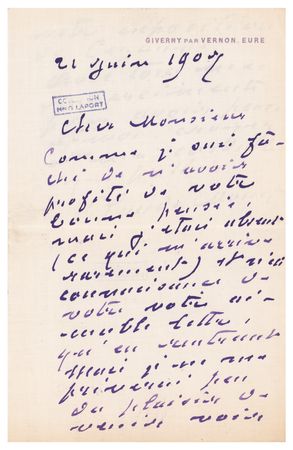 GIVERNY PAR VERNON. EURE
21 juin 1907
COLLECTION
LAPORT
Cher Monsieur
Comme je suis fâ-
ché de n'avoir
profité de votre
bonne pensée,
mais j'étais absent
(ce qui m'arrive
rarement) et n'ai
connaissance de
votre
aimable lettre
qu'en rentrant
Mais je ne me
priverai pas
du plaisir de
venir voir